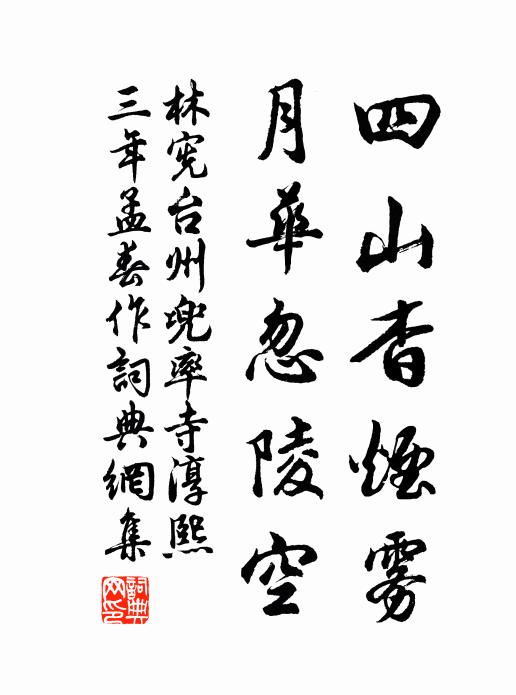 四山杳煙霧
月華忽陵空
林宪台州兜率寺淳熙
三年孟春作詞典網集
詞典网印